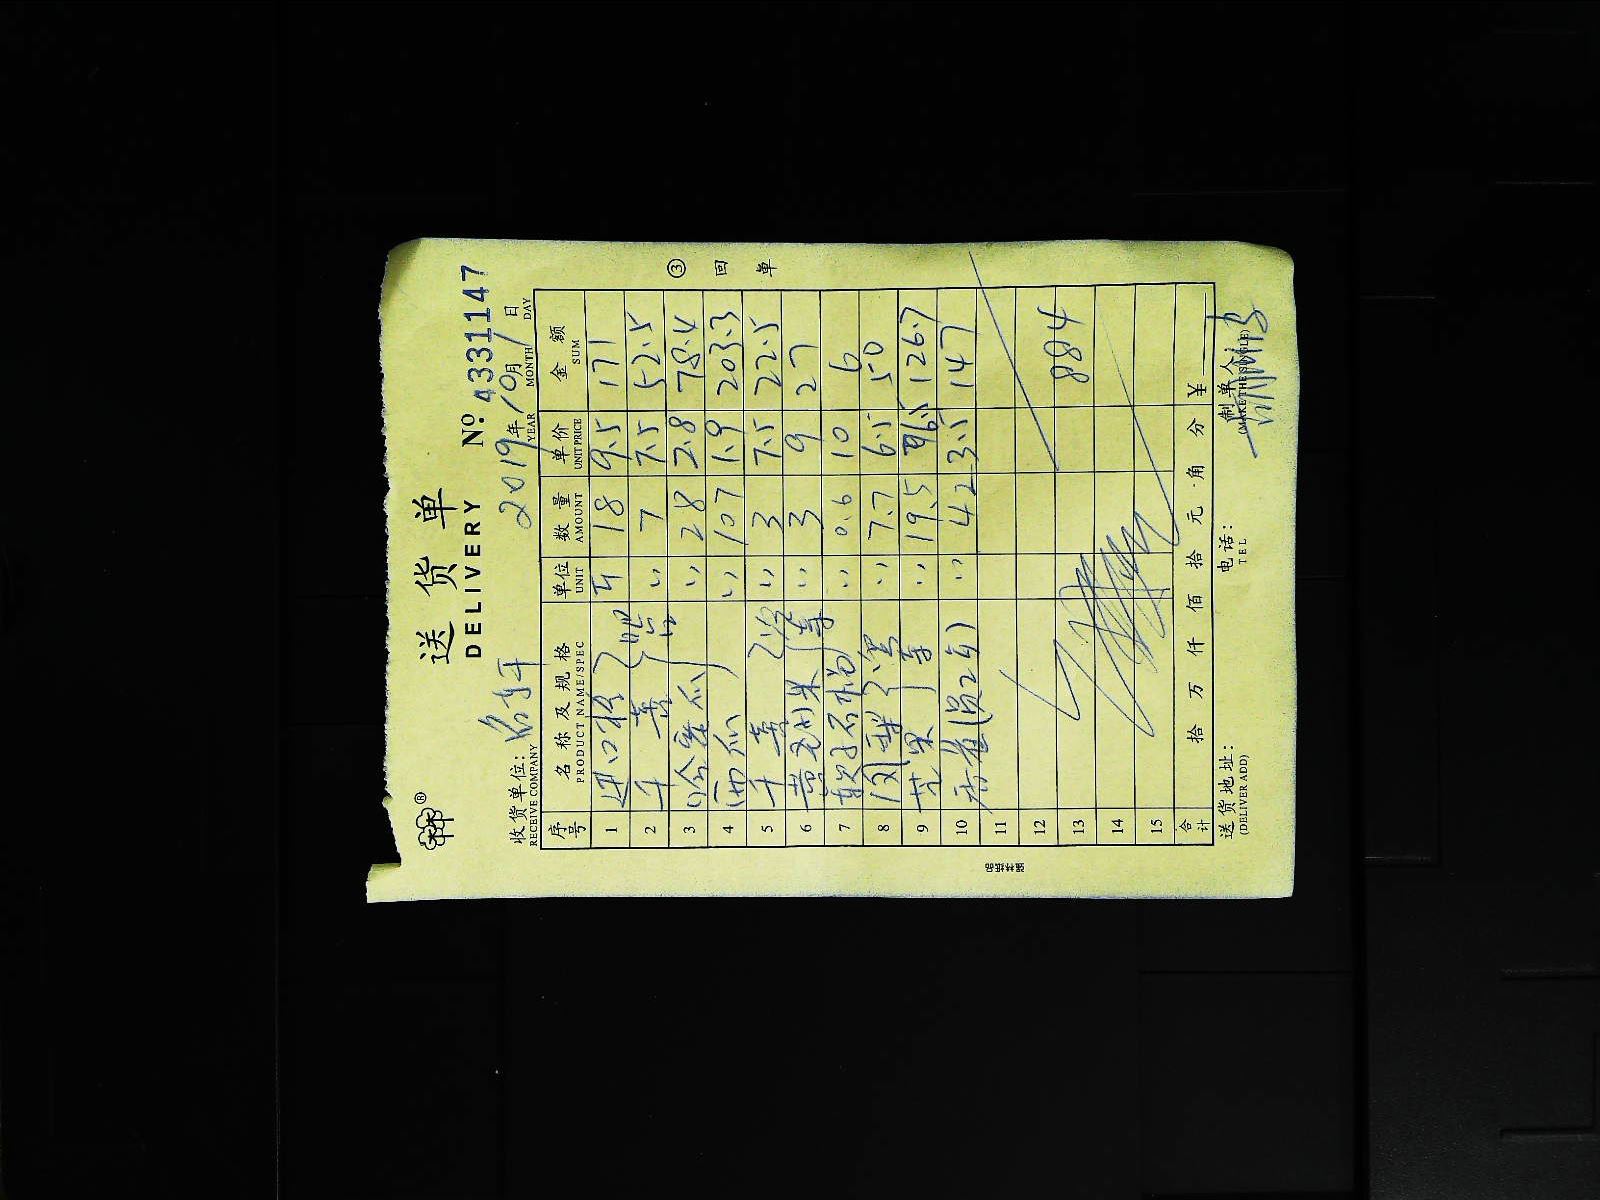 送 货 单
DELIVERY
№ 4331147
收货单位:
RECEIVE COMPANY
2019年10月1日
YEAR MONTH DAY
序号 名称及规格 单位 数量 单价 金额
PRODUCT NAME/SPEC UNIT AMOUNT UNIT PRICE SUM
1 进口 斤 18 9.5 171
2 7 7.5 52.5
3 哈蜜瓜 28 2.8 78.4
4 西瓜 107 1.9 203.3
5 3 7.5 22.5
6 3 9 27
7 0.6 10 6
8 7.7 6.5 50
9 19.5 6.5 126.7
10 香蕉 42 3.5 147
11
12
13 884
14
15
合计 拾 万 仟 佰 拾 元 角 分 ¥
送货地址: 电话: 制单人
(DELIVER ADD) TEL (MAKE THE SINGLE)
③ 回单
强林纸品